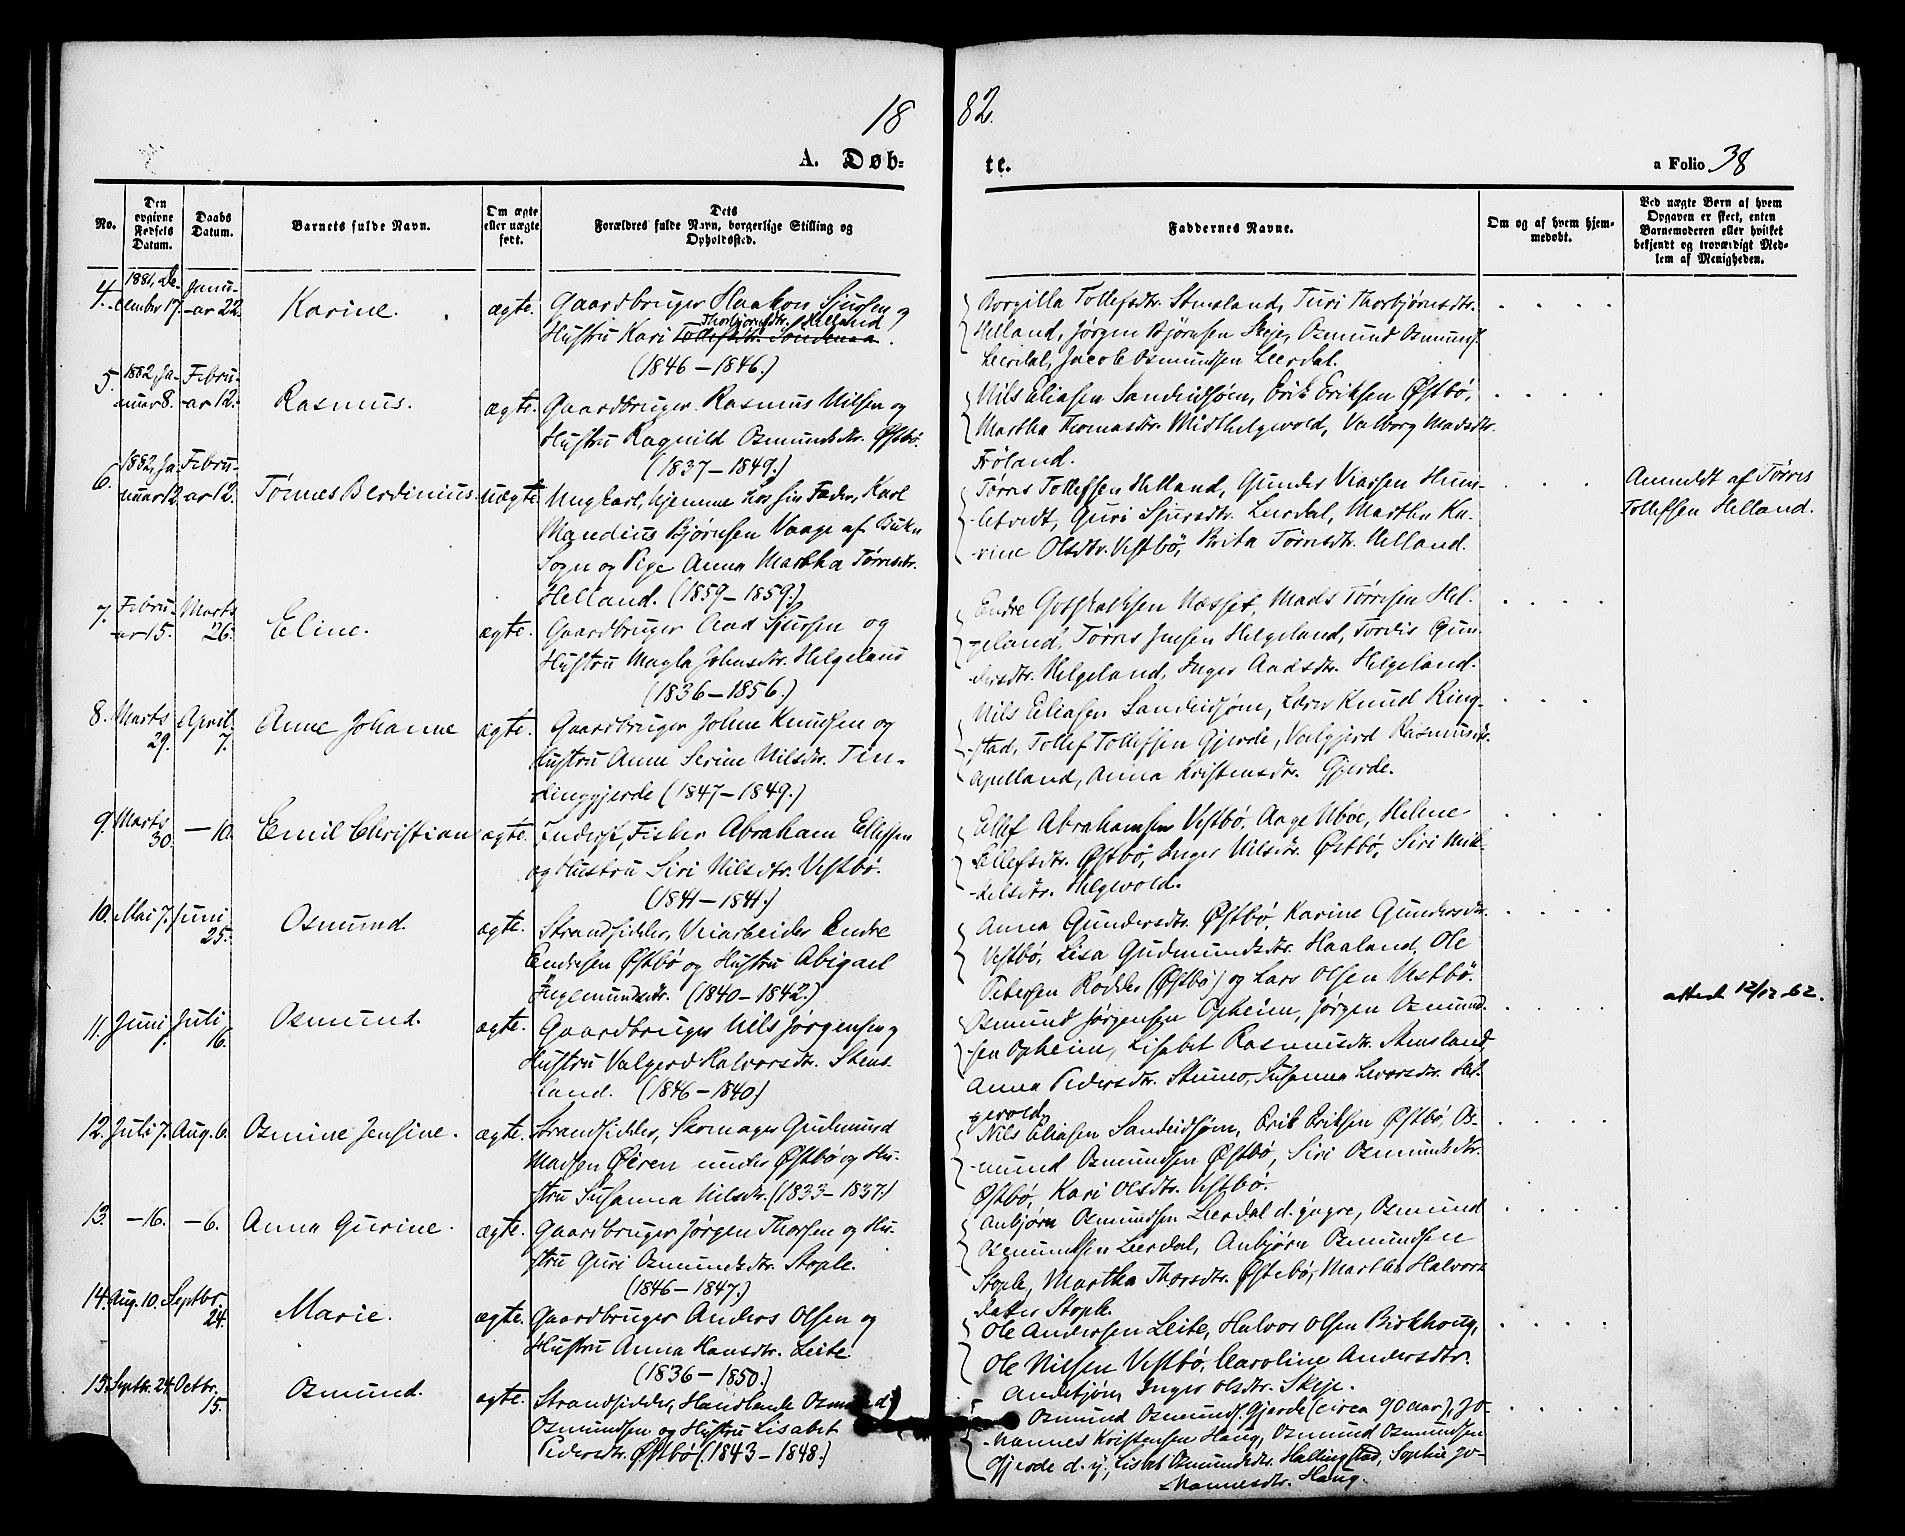 18 82.
A. Døb- te.
a Folio 38
No.
Den opgivne Fødsels Datum.
Daabs Datum.
Barnets fulde Navn.
Om ægte eller uægte født.
Dets Forældres fulde Navn, borgerlige Stilling og Opholdssted.
Faddernes Navne.
Om og af hvem hjemmedøbt.
Ved uægte Børn af hvem Opgaven er skeet, enten Barnemoderen eller hvilket bekjendt og troværdigt Medlem af Menigheden.
4. 1881, December 17. Januar 22. Karine. ægte.
Gaardbruger Haakon Sjursen og
Hustru Kari Thorbjørnsdtr. Helland
Tollefsdtr. Søndenaa.
(1846-1846.)
Borgilla Tollefsdtr. Stensland, Turi Thorbjørnsdtr.
Helland, Jørgen Bjørnsen Skeje, Osmund Osmunds.
Leerdal, Jacob Osmundsen Leerdal.
5. 1882, Januar 8. Februar 12. Rasmus. ægte.
Gaardbruger Rasmus Nilsen og
Hustru Ragnild Osmundsdtr. Østbø.
(1837-1849.)
Nils Eliasen Sandeidsøen, Erik Eriksen Østbø,
Martha Thomasdtr. Midthelgevold, Valborg Madsdtr.
Frøland.
6. 1882, Januar 12 Februar 12. Tønnes Berdinius. uægte.
Ungkarl, hjemme hos sin Fader, Karl
Mandius Bjørnsen Vaage af Bukn
Sogn og Pige Anna Martha Tørresdtr.
Helland. (1859-1859.)
Tørres Tollefsen Helland, Gunder Viarsen Hum-
letvedt, Guri Sjursdtr. Leerdal, Martha Ka-
rine Olsdtr. Vestbø, Brita Tørresdtr. Helland.
Anmeldt af Tørres
Tollefsen Helland.
7. Februar 15. Marts 26. Eline. ægte.
Gaardbruger Aad Sjursen og
Hustru Magla Johnsdtr. Helgeland
(1836-1856.)
Endre Gotskalksen Næsset, Mads Tørresen Hel-
geland, Tørres Jensen Helgeland, Tordis Gun-
dersdtr. Helgeland, Inger Aadsdtr. Helgeland.
8. Marts 29. April 7. Anne Johanne ægte.
Gaardbruger Johne Knudsen og
Hustru Anne Serine Nilsdtr. Tin-
dinggjerde (1847-1849.)
Nils Eliasen Sandeidsøen, Lærer Knud Ring-
stad, Tollef Tollefsen Gjerde, Valgjerd Rasmusdtr.
Apelland, Anna Kristensdtr. Gjerde.
9. Marts 30. -10. Emil Christian ægte.
Inderst, Fisker Abraham Ellefsen
og Hustru Siri Nilsdtr. Vestbø.
(1841-1841.)
Ellef Abrahamsen Vestbø, Aage Ubøe, Helene
Ellefsdtr. Østbø, Inger Nilsdtr. Østbø, Siri Mik-
kelsdtr. Helgevold.
10. Mai 7. Juni 25. Osmund. ægte.
Strandsidder, Veiarbeider Endre
Endresen Østbø og Hustru Abigael
Ingemundsdtr. (1840-1842.)
Anna Gundersdtr. Østbø, Karine Gundersdtr.
Vestbø, Lisa Gudmundsdtr. Haaland, Ole
Petersen Rødder (Østbø) og Lars Olsen Vestbø.
11. Juni 7. Juli 16. Osmund. ægte.
Gaardbruger Nils Jørgensen og
Hustru Valgerd Halvorsdtr. Stens-
land. (1846-1840)
Osmund Jørgensen Opheim, Jørgen Osmund-
sen Opheim, Lisabet Rasmusdtr. Stensland
Anna Pedersdtr. Stumo, Susanna Leversdtr. Hel-
gevold.
attest 12/12 62.
12. Juli 7. Aug. 6. Osmine Jensine. ægte.
Strandsidder, Skomager Gudmund
Madsen Øiren under Østbø og Hu-
stru Susanna Nilsdtr. (1833-1837)
Nils Eliasen Sandeidsøen, Erik Eriksen Østbø, Os-
mund Osmundsen Østbø, Siri Osmundsdtr.
Østbø, Kari Olsdtr. Vestbø.
13. -16. -6. Anna Gurine. ægte.
Gaardbruger Jørgen Thorsen og Hu-
stru Guri Osmundsdtr. Stople.
(1846-1847.)
Anbjørn Osmundsen Leerdal d. yngre, Osmund
Osmundsen Leerdal, Anbjørn Osmundsen
Stople, Martha Thorsdtr. Østebø, Martha Halvors
datter Stople.
14. Aug. 10. Septbr. 24. Marie. ægte.
Gaardbruger Anders Olsen og
Hustru Anna Hansdtr. Leite
(1836-1850.)
Ole Andersen Leite, Halvor Olsen Birkhoug,
Ole Nilsen Vestbø, Caroline Andersdtr.
Andebjøm, Inger Olsdtr. Skeje.
15. Septbr. 24. Octbr. 15. Osmund. ægte.
Strandsidder, Handlende Osmund
Osmundsen og Hustru Lisabet
Pedersdtr. Østbø (1843-1848.)
Osmund Osmunds. Gjerde (circa 90 aar), Jo-
hannes Kristensen Haug, Osmund Osmundsen
Gjerde d. y., Lisbet Osmundsdtr. Hallingstad, Sophie Jo-
hannesdtr. Haug.